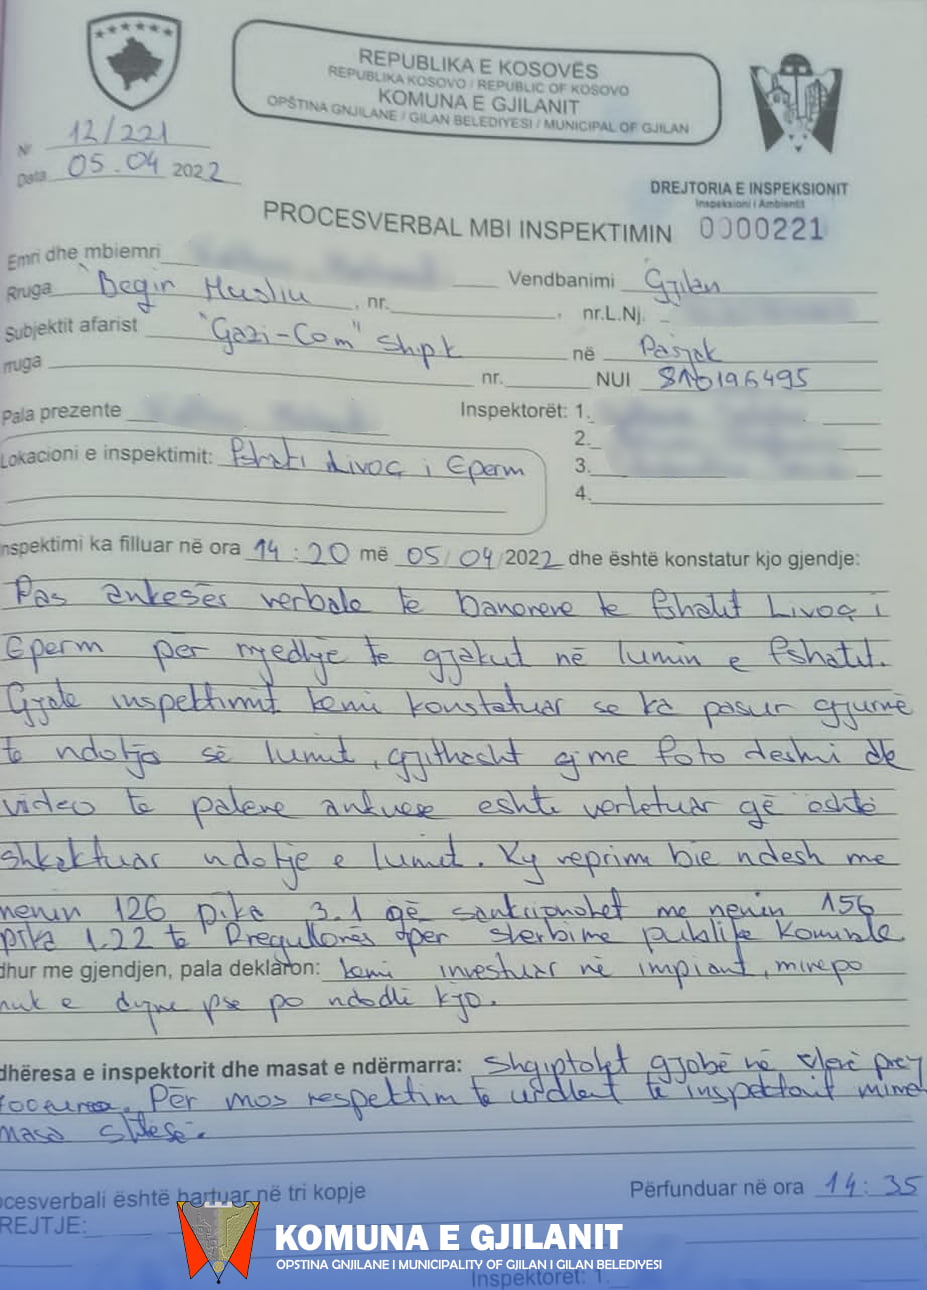 REPUBLIKA E KOSOVËS
REPUBLIKA KOSOVO / REPUBLIC OF KOSOVO
KOMUNA E GJILANIT
OPŠTINA GNJILANE / GILAN BELEDIYESI / MUNICIPAL OF GJILAN
Nr 12/221
Data 05.04 2022
DREJTORIA E INSPEKSIONIT
Inspeksioni i Ambientit
PROCESVERBAL MBI INSPEKTIMIN 0000221
Emri dhe mbiemri
Rruga Beqir Musliu, nr. , Vendbanimi Gjilan
nr.L.Nj.
Subjektit afarist "Gazi-Com" Shpk në Pasjak
rruga nr. NUI 810196495
Pala prezente Inspektorët: 1.
2.
Lokacioni e inspektimit: Fshati Livoq i Eperm
3.
4.
nspektimi ka filluar në ora 14:20 më 05/04/2022 dhe është konstatur kjo gjendje:
Pas ankesës verbale te banoreve te fshatit Livoq i
Eperm për rrjedhje te gjakut në lumin e fshatit.
Gjate inspektimit kemi konstatuar se ka pasur gjurmë
te ndotjes së lumit, gjithasht me foto deshmi dhe
video te paleve ankuese eshte vertetuar që është
shkaktuar ndotje e lumit. Ky veprim bie ndesh me
nenin 126 pika 3.1 që sanksionohet me nenin 156
pika 1.22 te Rregullorës për sherbime publike Komunale.
dhur me gjendjen, pala deklaron: kemi investuar në impiant, mirepo
nuk e dyme pse po ndodhë kjo.
dhëresa e inspektorit dhe masat e ndërmarra: Shqiptohet gjobë në vlerë prej
Për mos respektim te urdherit të inspektorit
masa shtesë.
ocesverbali është hartuar në tri kopje Përfunduar në ora 14:35
REJTJE:
KOMUNA E GJILANIT
OPSTINA GNJILANE I MUNICIPALITY OF GJILAN I GILAN BELEDIYESI
Inspektorët: 1.